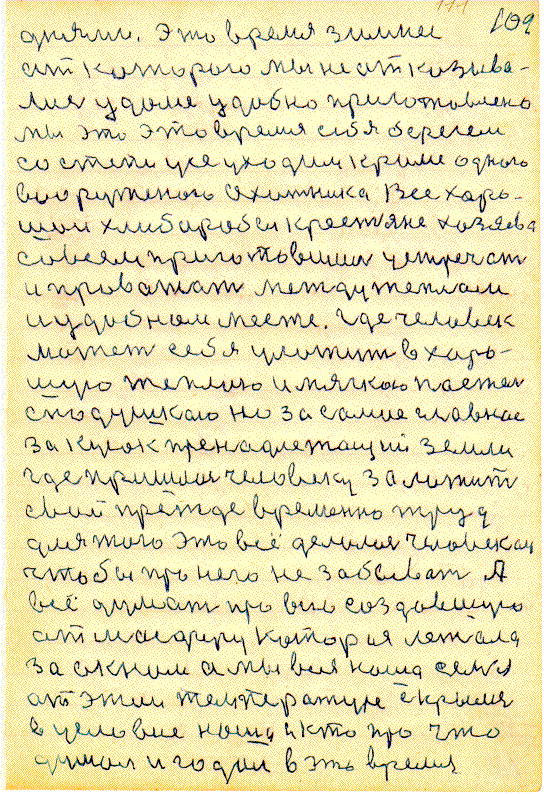 109
днями. Это время зимнее
от которого мы не отказыва-
лися у доме удобно приготовлено
мы это это время себя берегем
со степи усе уходим кроме одного
вооруженого охотника Все харо-
шои хлибаробы крестяне хозяева
совсем приготовший устречат
и проважат между теплом
и удобном месте. где человек
может себя уложит в харо-
шую теплую и мягкою постел
с подушкаю но за самие главное
за кусок пренадлежащий земли
где пришлос человеку заложит
свой прежде временно труд
для того это всё делалося человеком
чтобы про него не забыват А
всё думат про всю создавшую
атмасферу которая лежала
за окном а мы вся наша семя
от этои температуре
в условие наша и кто про что
думал и годал в это время